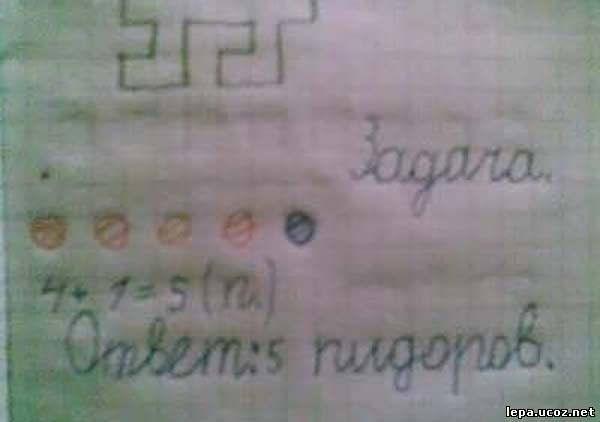 Задача.
4+1=5(п.)
Ответ:5 пидоров.
lepa.ucoz.net